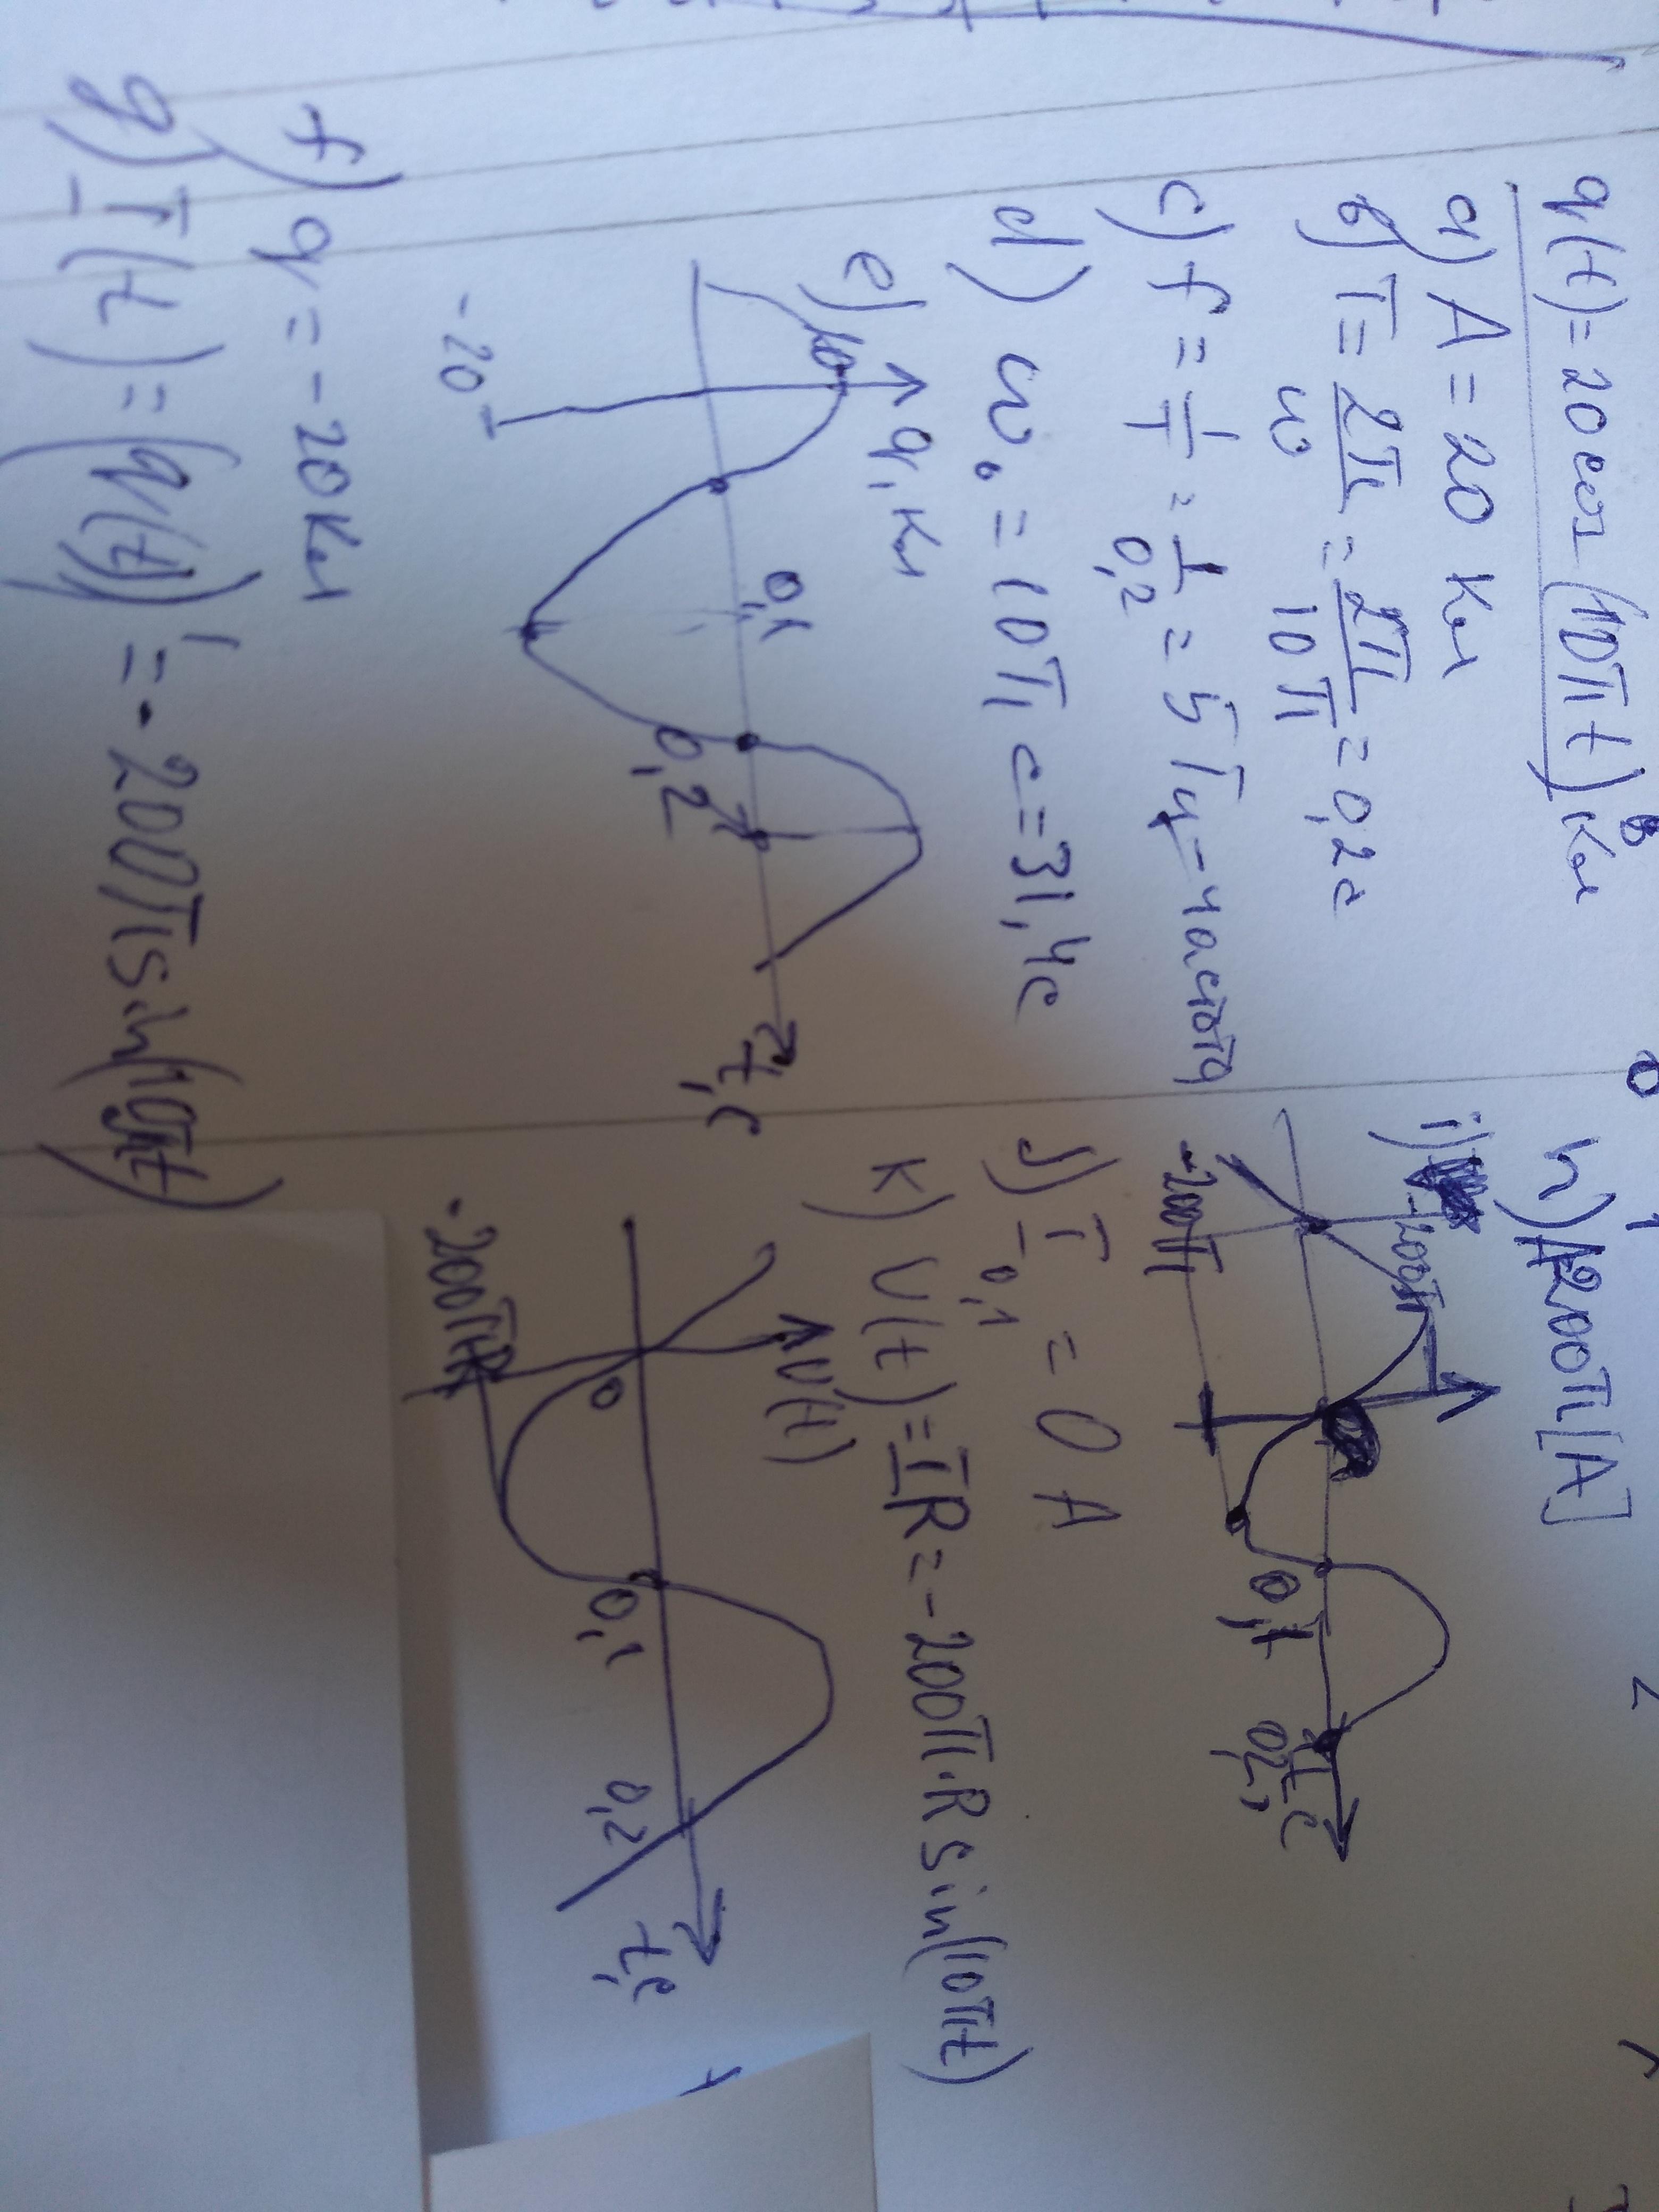 q(t)=20cos(10πt) Кл
a) A=20 Кл
b) T=2π/ω=2π/10π=0,2c
c) f=1/T=1/0,2=5Гц-частота
d) ω₀=10π c=31,4c
e)
q, Кл
0,1
0,2
-20
t,c
f) q=-20Кл
g) I(t)=(q(t))'=-200πsin(10πt)
h) 200π[A]
i)
-200π
-200π
0,1
0,2
t,c
j) I₀,₁=0 A
k) U(t)=IR=-200π·R sin(10πt)
U(t)
0
0,1
0,2
t,c
-200πR